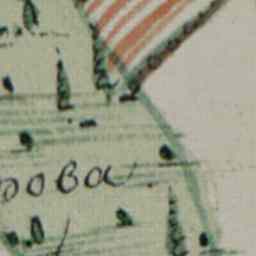 рова